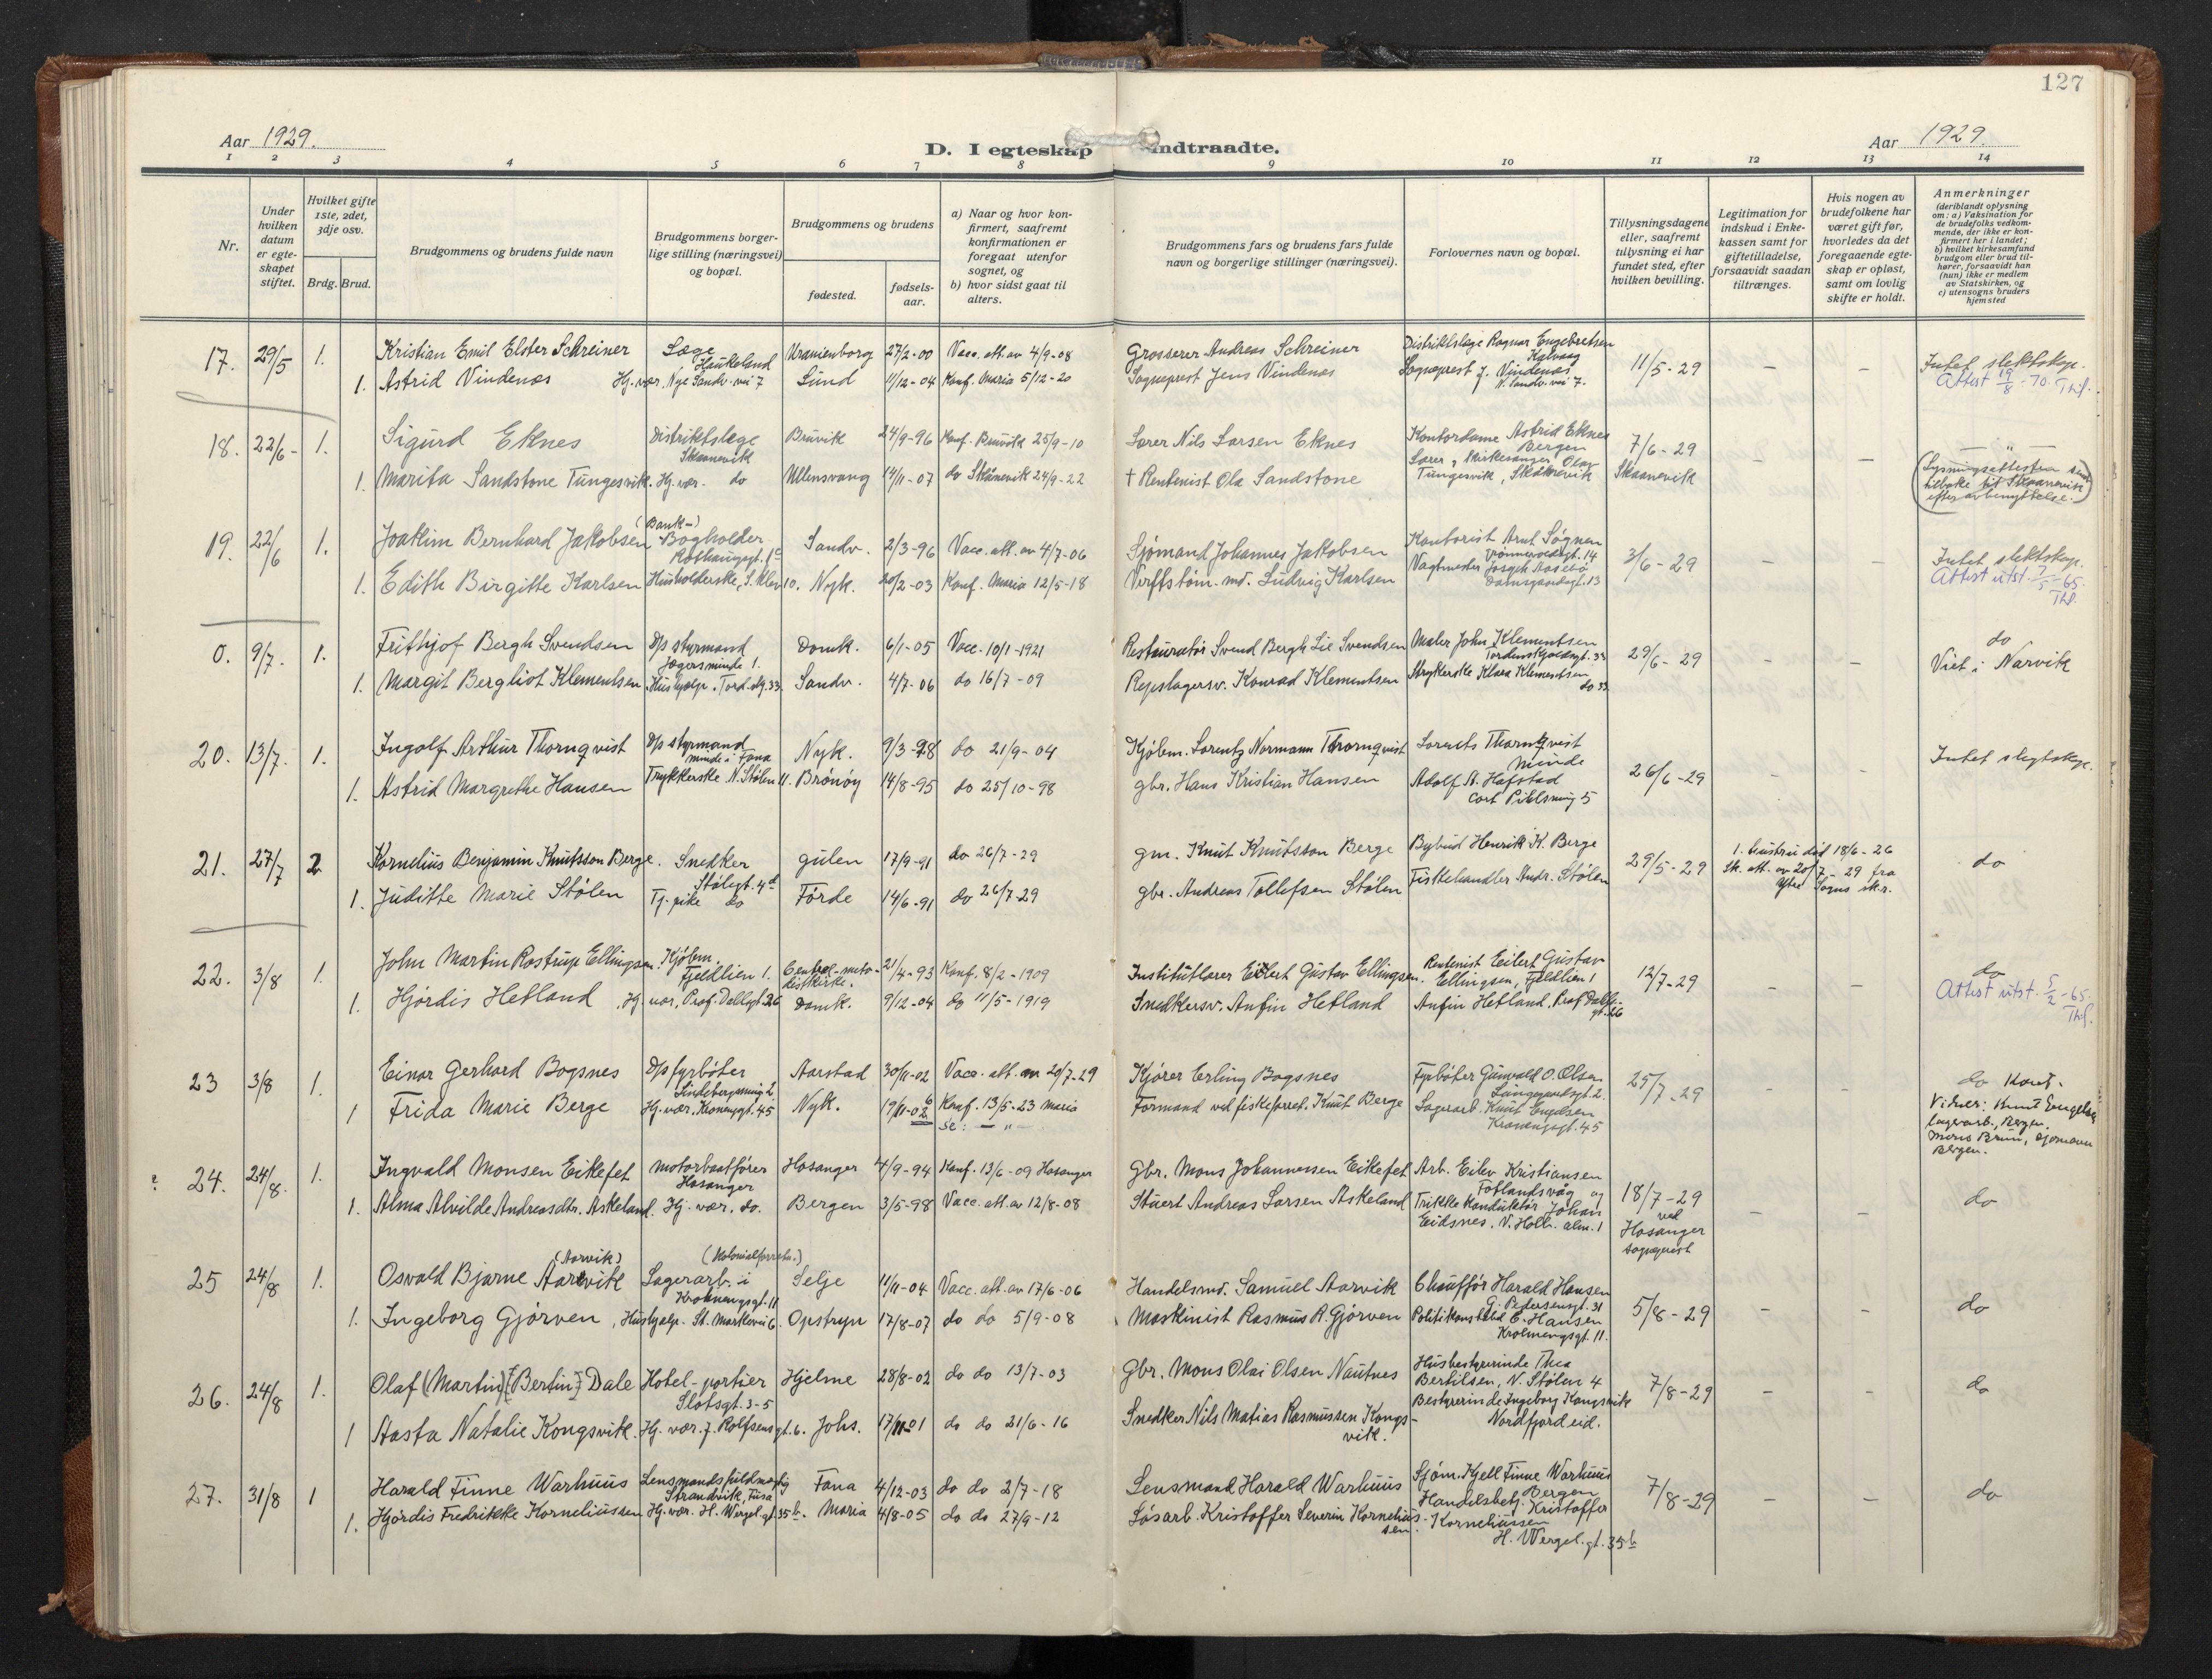 127
Aar 1929.
D. I egteskap indtraadte.
Aar 1929.
1 2 3 4 5 6 7 8 9 10 11 12 13 14
Nr.
Under hvilken datum er egteskapet stiftet.
Hvilket gifte 1ste, 2det, 3dje osv.
Brdg. Brud.
Brudgommens og brudens fulde navn
Brudgommens borgerlige stilling (næringsvei) og bopæl.
Brudgommens og brudens
fødested.
fødselsaar.
a) Naar og hvor konfirmert, saafremt konfirmationen er foregaat utenfor sognet, og
b) hvor sidst gaat til alters.
Brudgommens fars og brudens fars fulde navn og borgerlige stillinger (næringsvei).
Forlovernes navn og bopæl.
Tillysningsdagene eller, saafremt tillysning ei har fundet sted, efter hvilken bevilling.
Legitimation for indskud i Enkekassen samt for giftetilladelse, forsaavidt saadan tiltrænges.
Hvis nogen av brudefolkene har været gift før, hvorledes da det foregaaende egteskap er opløst, samt om lovlig skifte er holdt.
Anmerkninger (deriblandt oplysning om: a) Vaksination for de brudefolks vedkommende, der ikke er konfirmert her i landet; b) hvilket kirkesamfund brudgom eller brud tilhører, forsaavidt han (hun) ikke er medlem av Statskirken, og c) utensogns bruders hjemsted
17. 29/5 1. Kristian Emil Elster Schreiner Læge Haukeland Uranienborg 27/2-00 Vacc. att. av 4/9-08 Grosserer Andreas Schreiner Distriktslæge Ragnar Engebretsen Kalvaag 11/5-29 Intet slektskap.
1. Astrid Vindenes Hj. vær, Nye Sandv. vei 7 Lund 11/12-04 Konf. Maria 5/12-20 Sogneprest Jens Vindenes Sogneprest J. Vindenes N. Sandv. vei 7. Attest 19/8-70. Thf.
18. 22/6- 1. Sigurd Eknes Distriktslæge Skaanevik Bruvik 24/9-96 Konf. Bruvik 25/9-10 Lærer Nils Larsen Eknes Kontordame Astrid Eknes Bergen 7/6-29 Skaanevik — " —
1. Marita Sandstone Tungesvik. Hj. vær. do Ullensvang 14/11-07 do Skånevik 24/9-22 † Rentenist Ola Sandstone Lærer, Kirkesanger Olav Tungesvik, Skånevik (Lysningsattesten send tilbake til Skaanevik efter avbenyttelse.)
19. 22/6 1. Joakim Bernhard Jakobsen (Bank-) Bogholder Rothaugsgt. 1c Sandv. 2/3-96 Vacc. att. av 4/7-06 Sjømand Johannes Jakobsen Kontorist Arnt Søgnen 14 3/6-29 — — Intet slektskap.
1. Edith Birgitte Karlsen Husholderske, S. Klev 10. Nyk. 20/2-03 Konf. Maria 12/5-18 Verftstøm.md. Ludvig Karlsen Vagtmester Joseph Aasebø Damsgaardsgt. 13 Attest utst. 7/5-65. Thf.
0. 9/7. 1. Frithjof Bergh Svendsen D/s styrmand Jægersminde 1. Domk. 6/1-05 Vacc. 10/1-1921 Restauratør Svend Bergh Lie Svendsen Maler John Klementsen Tordenskjoldsgt. 33 29/6-29 — — do
1. Margit Bergliot Klementsen. Hushjælp. Tord.sk.g. 33. Sandv. 4/7-06 do 16/7-09 Repslagersv. Konrad Klementsen Strykerske Klara Klementsen do 33 Viet i Narvik
20. 13/7. 1. Ingolf Arthur Thornqvist D/s styrmand minde i Fana Nyk. 9/3-98 do 21/9-04 Kjøbm. Lorentz Normann Thornqvist Lorents Thornqvist Minde 26/6-29 — — Intet slegtskap.
1. Astrid Margrethe Hansen Trykkerske N. Stølen 11. Brönöy 14/8-95 do 25/10-98 gbr. Hans Kristian Hansen Adolf A. Hafstad Cort Pihlsmug 5
21. 27/7 2 Kornelius Benjamin Knutsson Berge. Snedker Stølegt. 4d gulen 17/9-91 do 26/7-29 gm. Knut Knutsson Berge Bybud Henrik K. Berge 29/5-29 1. hustru død 18/6-26 Sk. att. av 20/7-29 fra Ytre Sogns sk.r. do
1. Juditte Marie Stølen Tj. pike do Førde 14/6-91 do 26/7-29 gbr. Andreas Tollefsen Stølen Fiskehandler Andr. Stølen
22. 3/8 1. John Martin Rostrup Ellingsen. Kjøbm. Fjeldlien 1. Central-metodistkirke. 21/4-93 Konf. 8/2-1909 Institutlærer Eilert Gustav Ellingsen. Rentenist Eilert Gustav Ellingsen, Fjeldlien 1 12/7-29 — — do
1. Hjørdis Hetland, Hj. vær, Prof. Dallsgt. 26 Domk. 9/12-04 do 11/5-1919 Snedkersv. Anfin Hetland Anfin Hetland. Prof Dallsgt. 26 Attest utst. 5/2-65. Thf.
23 3/8 1. Einar Gerhard Bogsnes D/s fyrbøter 2 Aarstad 30/11-02 Vacc. att. av 20/7-29 Kjører Erling Bogsnes Fyrbøter Gunvald O. Olsen 2. 25/7-29 — — do Kont.
1 Frida Marie Berge Hj. vær. Kroneng.gt. 45 Nyk. 19/11-06 Konf. 13/5-23 Maria se: — " — Formand ved fiskeforret. Knut Berge Lagerarb. Knut Engelsen Kronengsgt. 45 Vidner: Knut Engelsen lagerarb., Bergen. Mons Brun, sjømann Bergen.
24. 24/8. 1. Ingvald Monsen Eikefet Motorbaatfører Hosanger Hosanger 4/9-94 Konf. 13/6-09 Hosanger Gbr. Mons Johannessen Eikefet Arb. Eilev Kristiansen Fotlandsvåg og 18/7-29 ved Hosanger sogneprest — — do
1. Alma Alvilde Andreasdtr. Askeland. Hj. vær. do. Bergen 3/5-98 Vacc. att. av 12/8-08 Stuert Andreas Larsen Askeland Trikkekonduktør Johan Eidsnes. V. Holb. alm. 1
25 24/8 1. Osvald Bjarne Aarevik (Aarvik) Lagerarb. i (Kolonialforretn.) Krohnengsgt. 11 Selje 11/11-04 Vacc. att. av 17/6-06 Handelsmd. Samuel Aarvik Chauffør Harald Hansen G. Pedersensgt. 31 5/8-29 — — do
1. Ingeborg Gjørven, Hushjælp. St. Markevei 6. Opstryn 17/8-07 do do 5/9-08 Maskinist Rasmus R. Gjørven Politikonstabel E. Hansen Krohnengsgt. 11.
26. 24/8 1. Olaf (Martin) [Bertin] Dale Hotel-portier Slotsgt. 3-5 Hjelme 28/8-02 do do 13/7-03 Gbr. Mons Olai Olsen Nautnes Husbestyrerinde Thea Bertilsen, N. Stølen 4 7/8-29 — — do
1 Aasta Natalie Kongsvik. Hj. vær. J. Rolfsensgt. 6. Johs. 17/11-01 do do 21/6-16 Snedker Nils Matias Rasmussen Kongsvik. Bestyrerinde Ingeborg Kongsvik Nordfjordeid.
27. 31/8 1 Harald Finne Warhuus Lensmandsfuldmægtig Strandvik, Fusa Fana 4/12-03 do do 2/7-18 Lensmand Harald Warhuus Sjøm. Kjell Finne Warhuus Bergen 7/8-29 — — do
1. Hjørdis Fredrikke Korneliussen Hj. vær. H. Wergel.gt. 35b. Maria 4/8-05 do do 27/9-12 Løsarb. Kristoffer Severin Korneliussen. Handelsbetj. Kristoffer Korneliussen H. Wergel.gt. 35b